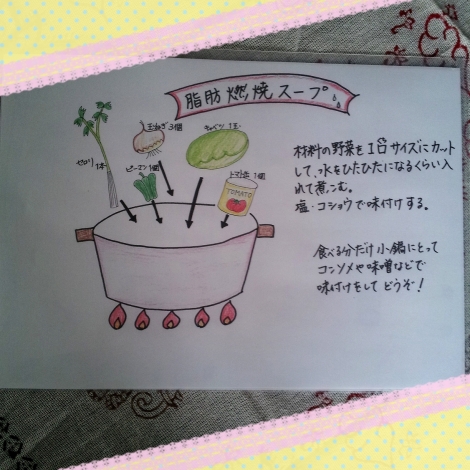 脂肪燃焼スープ
玉ねぎ3個
キャベツ1玉
セロリ
1本
ピーマン1個
トマト缶1個
TOMATO
材料の野菜を1口サイズにカット
して、水をひたひたになるくらい入
れて煮こむ。
塩・コショウで味付けする。
食べる分だけ小鍋にとって
コンソメや味噌などで
味付けをしてどうぞ!